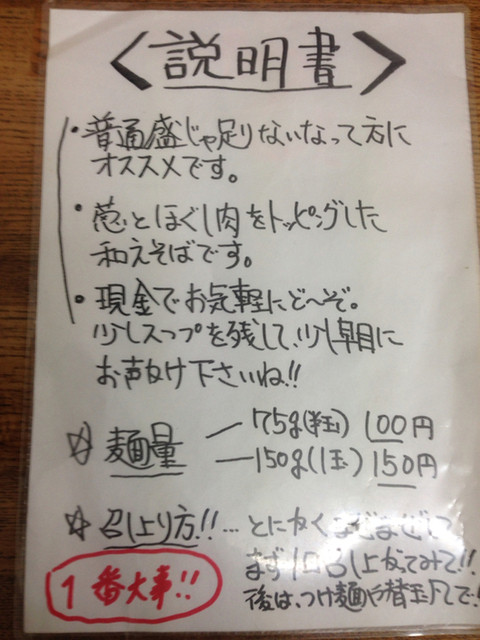 〈説明書〉
・普通盛じゃ足りないなって方に
オススメです。
・葱とほぐし肉をトッピングした
和えそばです。
・現金でお気軽にど〜ぞ。
少しスープを残して、少し早目に
お声がけ下さいね!!
☆麺量 ─ 75g(半玉) 100円
─ 150g(1玉) 150円
☆召し上り方!!…とにかくまぜまぜして
1番大事!!
まず1口召し上がってみて!!
後は、つけ麺や替玉風で!!